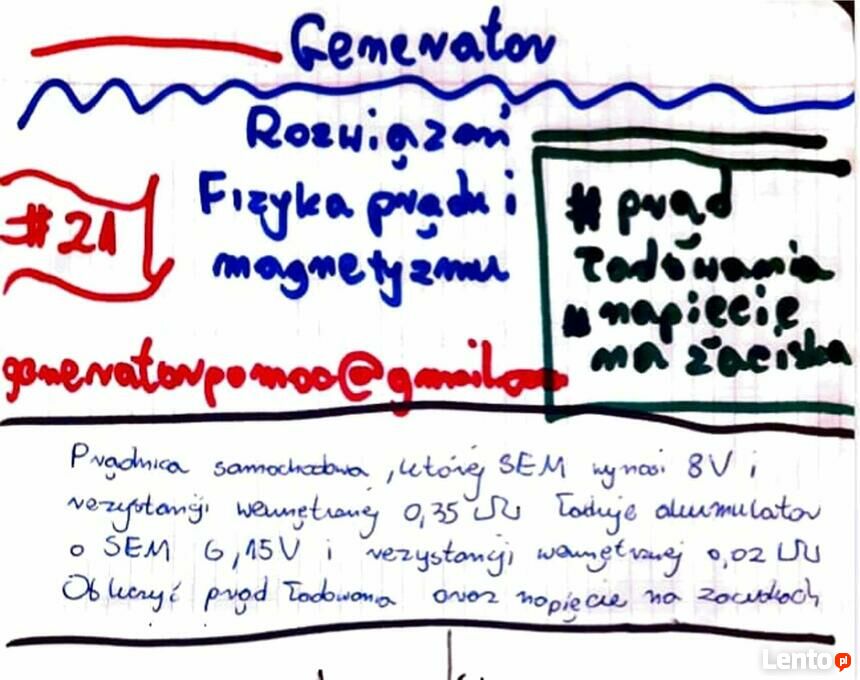 Generator
Rozwiązań
Fizyka prądu i
magnetyzmu
#21
# prąd
ładowania
napięcie
na zaciska
generatorpomoc@gmail.com
Prądnica samochodowa, której SEM wynosi 8V i
rezystancji wewnętrznej 0,35 Ω ładuje akumulator
o SEM 6,15V i rezystancji wewnętrznej 0,02 Ω
Obliczyć prąd ładowania oraz napięcie na zaciskach
Lento.pl